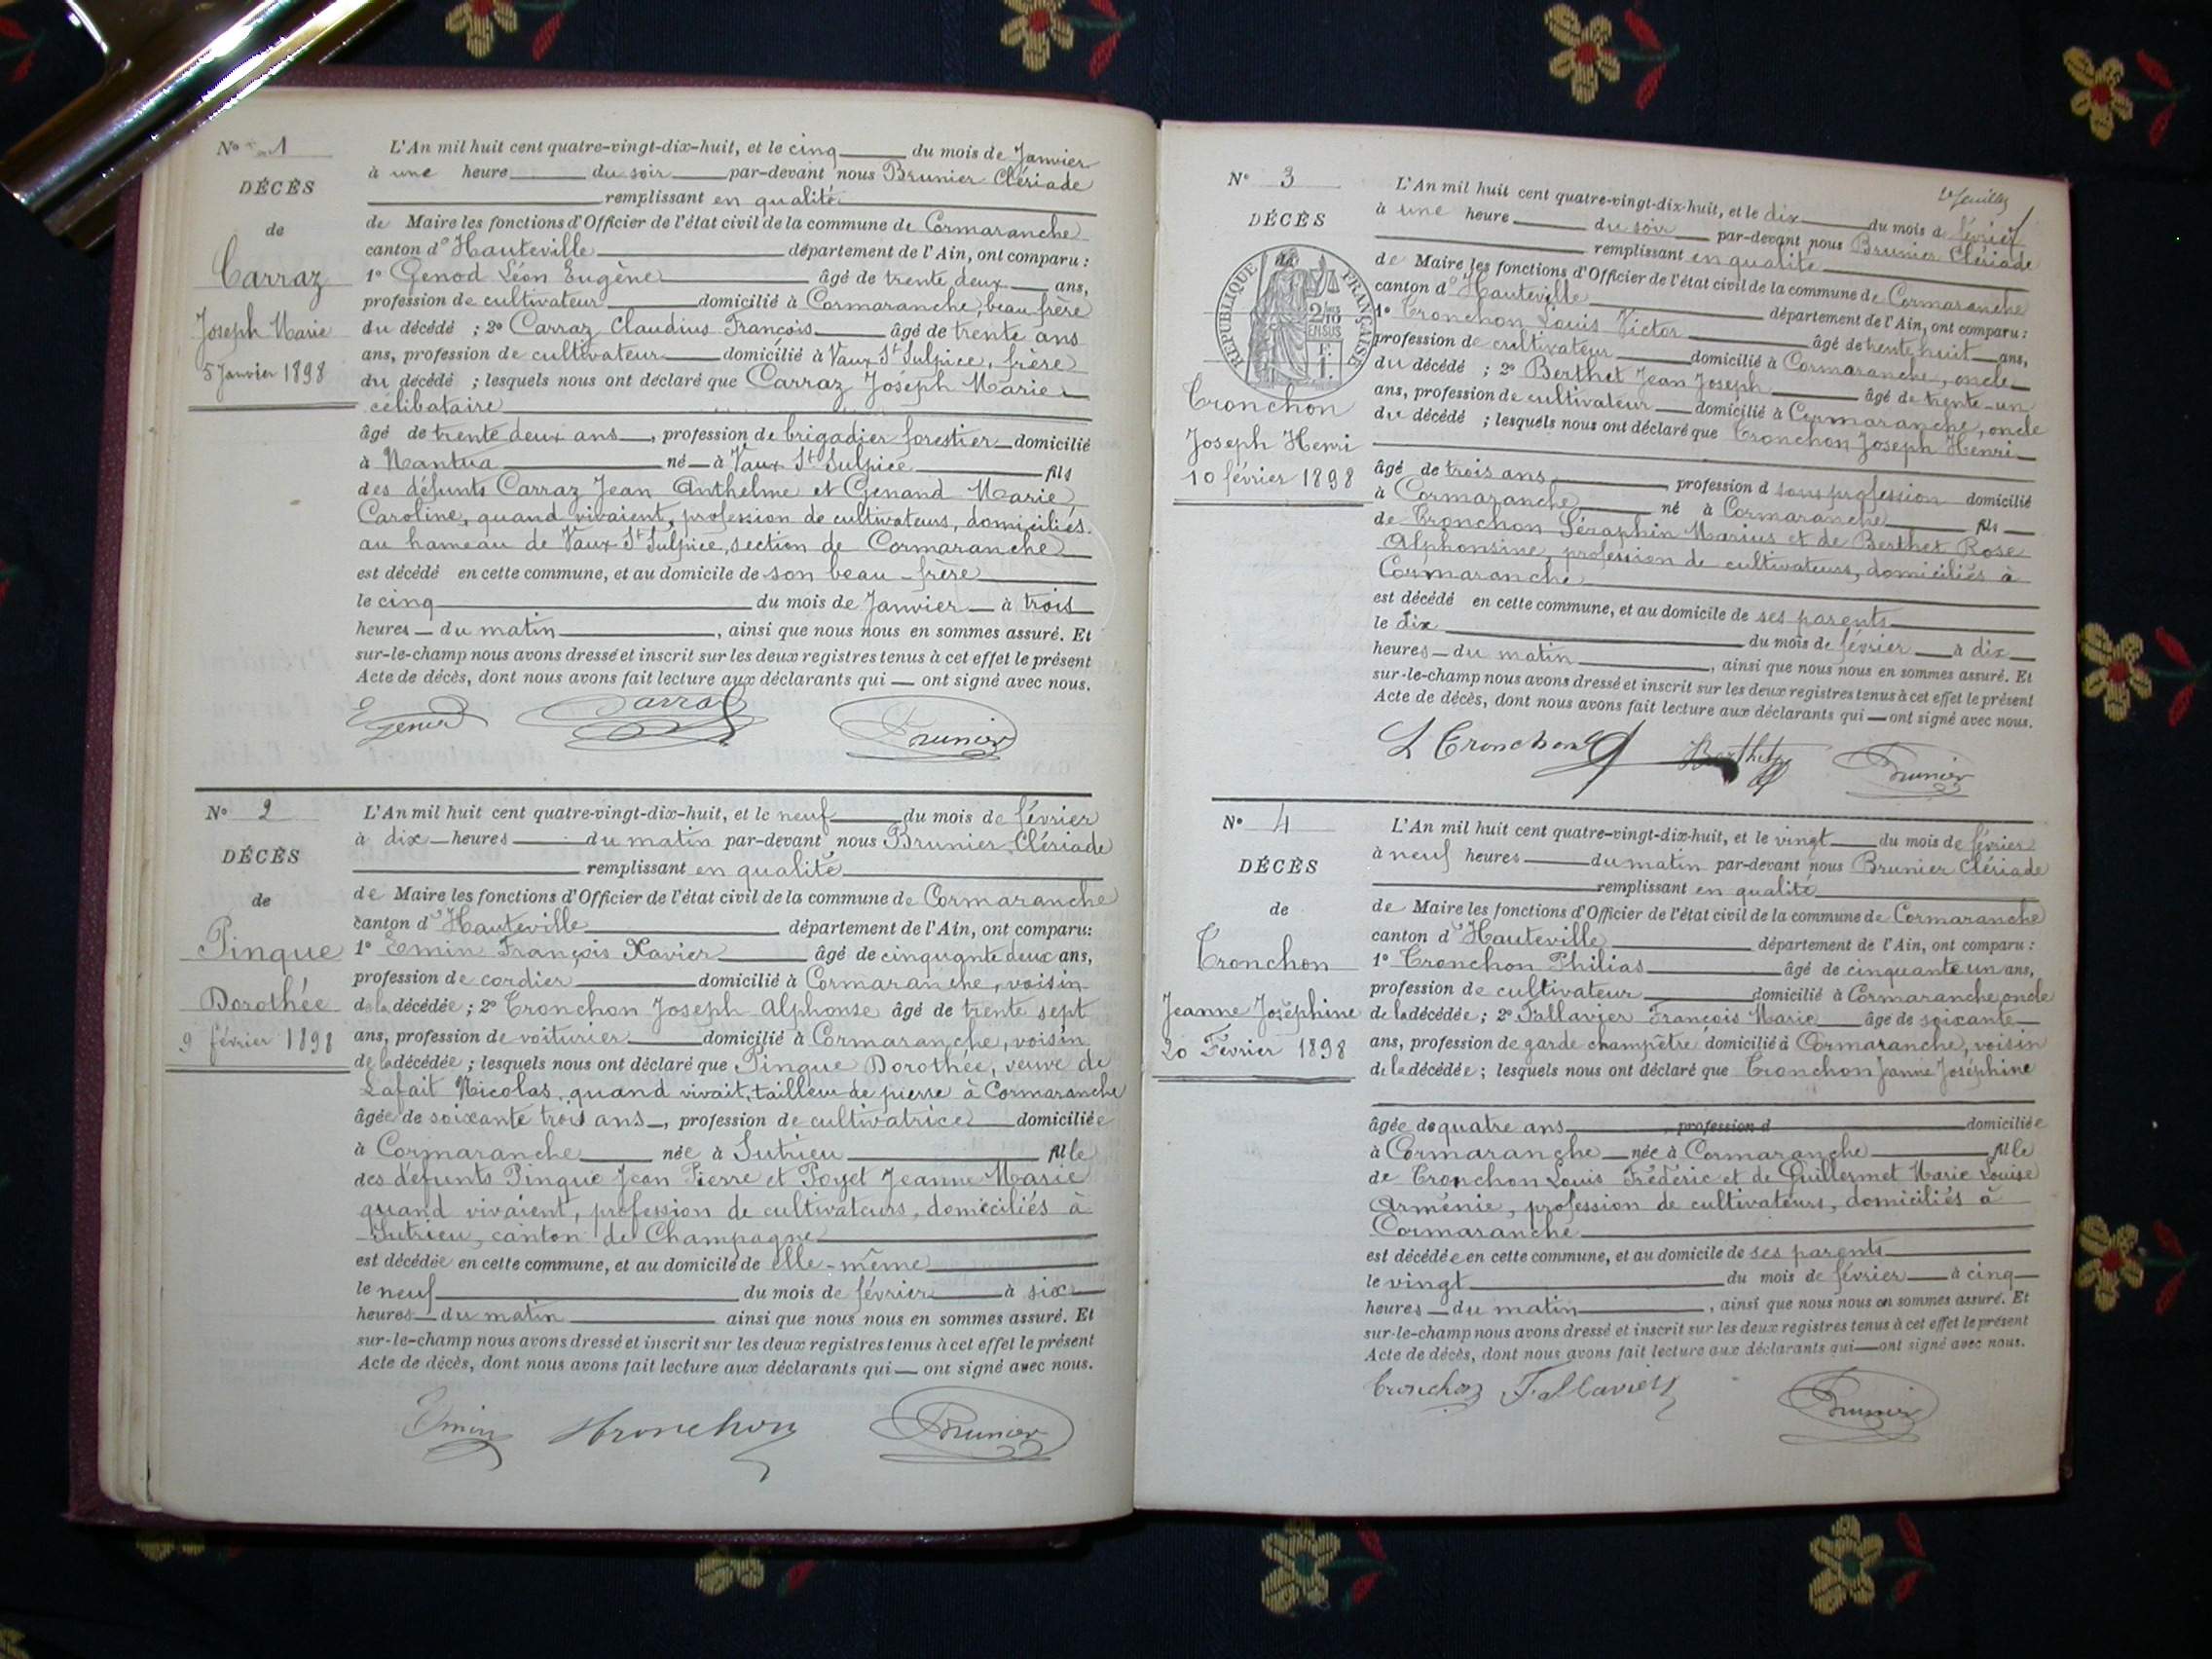 N° 1
DÉCÈS
de
Carraz
Joseph Marie
5 Janvier 1898
L'An mil huit cent quatre-vingt-dix-huit, et le cinq du mois de Janvier
à une heure du soir par-devant nous Brunier Clériade
remplissant en qualité
de Maire les fonctions d'Officier de l'état civil de la commune de Cormaranche
canton d'Hauteville département de l'Ain, ont comparu :
1° Genod Léon Eugène âgé de trente deux ans,
profession de cultivateur domicilié à Cormaranche, beau frère
du décédé ; 2° Carraz Claudius François âgé de trente ans
ans, profession de cultivateur domicilié à Vaux St Sulpice, frère
du décédé ; lesquels nous ont déclaré que Carraz Joseph Marie
célibataire
âgé de trente deux ans, profession de brigadier forestier domicilié
à Nantua né à Vaux St Sulpice fils
des défunts Carraz Jean Anthelme et Genand Marie
Caroline, quand vivaient, profession de cultivateurs, domiciliés
au hameau de Vaux St Sulpice, section de Cormaranche
est décédé en cette commune, et au domicile de son beau-frère
le cinq du mois de Janvier à trois
heures du matin, ainsi que nous nous en sommes assuré. Et
sur-le-champ nous avons dressé et inscrit sur les deux registres tenus à cet effet le présent
Acte de décès, dont nous avons fait lecture aux déclarants qui ont signé avec nous.
Genod Carraz Brunier
N° 2
DÉCÈS
de
Pinque
Dorothée
9 février 1898
L'An mil huit cent quatre-vingt-dix-huit, et le neuf du mois de février
à dix heures du matin par-devant nous Brunier Clériade
remplissant en qualité
de Maire les fonctions d'Officier de l'état civil de la commune de Cormaranche
canton d'Hauteville département de l'Ain, ont comparu:
1° Emin François Xavier âgé de cinquante deux ans,
profession de cordier domicilié à Cormaranche, voisin
de la décédée ; 2° Tronchon Joseph Alphonse âgé de trente sept
ans, profession de voiturier domicilié à Cormaranche, voisin
de la décédée ; lesquels nous ont déclaré que Pinque Dorothée, veuve de
Lafait Nicolas, quand vivait, tailleur de pierre à Cormaranche
âgée de soixante trois ans, profession de cultivatrice domiciliée
à Cormaranche née à Sutrieu fille
des défunts Pinque Jean Pierre et Poyet Jeanne Marie
quand vivaient, profession de cultivateurs, domiciliés à
Sutrieu, canton de Champagne
est décédée en cette commune, et au domicile de elle-même
le neuf du mois de février à six
heures du matin ainsi que nous nous en sommes assuré. Et
sur-le-champ nous avons dressé et inscrit sur les deux registres tenus à cet effet le présent
Acte de décès, dont nous avons fait lecture aux déclarants qui ont signé avec nous.
Emin Tronchon Brunier
N° 3
DÉCÈS
de
RÉPUBLIQUE FRANÇAISE
2/10
EN SUS
Tronchon
Joseph Henri
10 février 1898
L'An mil huit cent quatre-vingt-dix-huit, et le dix du mois de février
à une heure du soir par-devant nous Brunier Clériade
remplissant en qualité
de Maire les fonctions d'Officier de l'état civil de la commune de Cormaranche
canton d'Hauteville département de l'Ain, ont comparu :
1° Tronchon Louis Victor âgé de trente huit ans,
profession de cultivateur domicilié à Cormaranche, oncle
du décédé ; 2° Berthet Jean Joseph âgé de trente-un
ans, profession de cultivateur domicilié à Cormaranche, oncle
du décédé ; lesquels nous ont déclaré que Tronchon Joseph Henri
âgé de trois ans profession d sans profession domicilié
à Cormaranche né à Cormaranche fils
de Tronchon Séraphin Marius et de Berthet Rose
Alphonsine, profession de cultivateurs, domiciliés à
Cormaranche
est décédé en cette commune, et au domicile de ses parents
le dix du mois de février à dix
heures du matin, ainsi que nous nous en sommes assuré. Et
sur-le-champ nous avons dressé et inscrit sur les deux registres tenus à cet effet le présent
Acte de décès, dont nous avons fait lecture aux déclarants qui ont signé avec nous.
L Tronchon Berthet Brunier
N° 4
DÉCÈS
de
Tronchon
Jeanne Joséphine
20 Février 1898
L'An mil huit cent quatre-vingt-dix-huit, et le vingt du mois de février
à neuf heures du matin par-devant nous Brunier Clériade
remplissant en qualité
de Maire les fonctions d'Officier de l'état civil de la commune de Cormaranche
canton d'Hauteville département de l'Ain, ont comparu :
1° Tronchon Philias âgé de cinquante un ans,
profession de cultivateur domicilié à Cormaranche, oncle
de la décédée ; 2° Fallavier François Marie âgé de soixante
ans, profession de garde champêtre domicilié à Cormaranche, voisin
de la décédée ; lesquels nous ont déclaré que Tronchon Jeanne Joséphine
âgée de quatre ans profession d domiciliée
à Cormaranche née à Cormaranche fille
de Tronchon Louis Frédéric et de Guillermet Marie Louise
Arménie, profession de cultivateurs, domiciliés à
Cormaranche
est décédée en cette commune, et au domicile de ses parents
le vingt du mois de février à cinq
heures du matin, ainsi que nous nous en sommes assuré. Et
sur-le-champ nous avons dressé et inscrit sur les deux registres tenus à cet effet le présent
Acte de décès, dont nous avons fait lecture aux déclarants qui ont signé avec nous.
Tronchon Fallavier Brunier